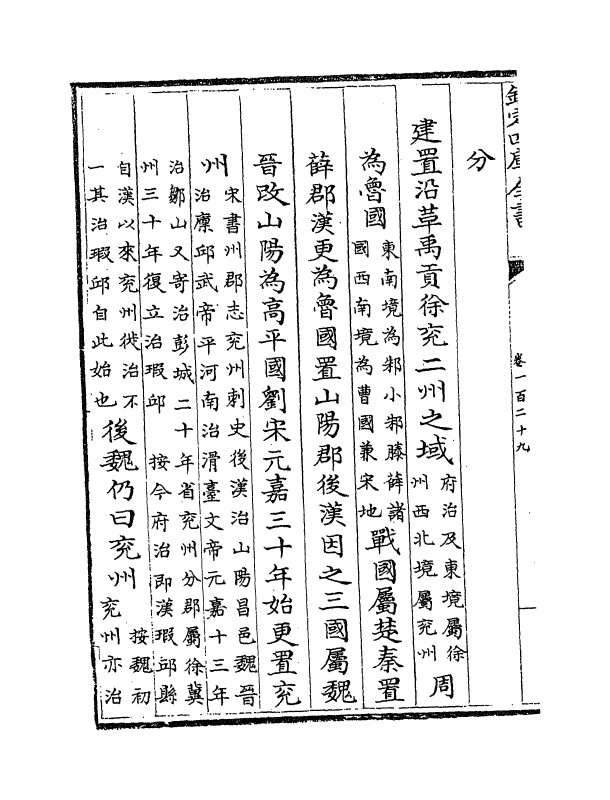 欽定四庫全書
卷一百二十九
分
建置沿革禹貢徐兖二州之域府治及東境屬徐
州西北境屬兖州周
為魯國東南境為邾小邾滕薛諸
國西南境為曹國兼宋地戰國屬楚秦置
薛郡漢更為魯國置山陽郡後漢因之三國屬魏
晉改山陽為高平國劉宋元嘉三十年始更置兖
州宋書州郡志兖州刺史後漢治山陽昌邑魏晉
治廩邱武帝平河南治滑臺文帝元嘉十三年
治鄒山又寄治彭城二十年省兖州分郡屬徐冀
州三十年復立治瑕邱 按今府治即漢瑕邱縣
自漢以來兖州徙治不
一其治瑕邱自此始也後魏仍曰兖州按魏初
兖州亦治